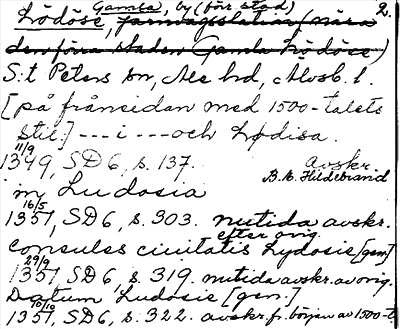 Gamla, by (förr stad) 2.
Lödöse, järnvägsstation (nära
den förra staden Gamla Lödöse)
S:t Peters sn, Ale hd, Älvsb. l.
[på frånsidan med 1500-talets
stil] --- i --- och Lödisa.
11/9
1349, SD 6, s. 137. avskr.
B. E. Hildebrand
in Ludosia
16/5
1351, SD 6, s. 303. nutida avskr.
efter orig.
consules ciuitatis Lydosie [gen.]
29/9
1351, SD 6, s. 319. nutida avskr. av orig.
Datum Ludosie [gen.]
1351, SD 6, s. 322. avskr. fr. början av 1500-t.